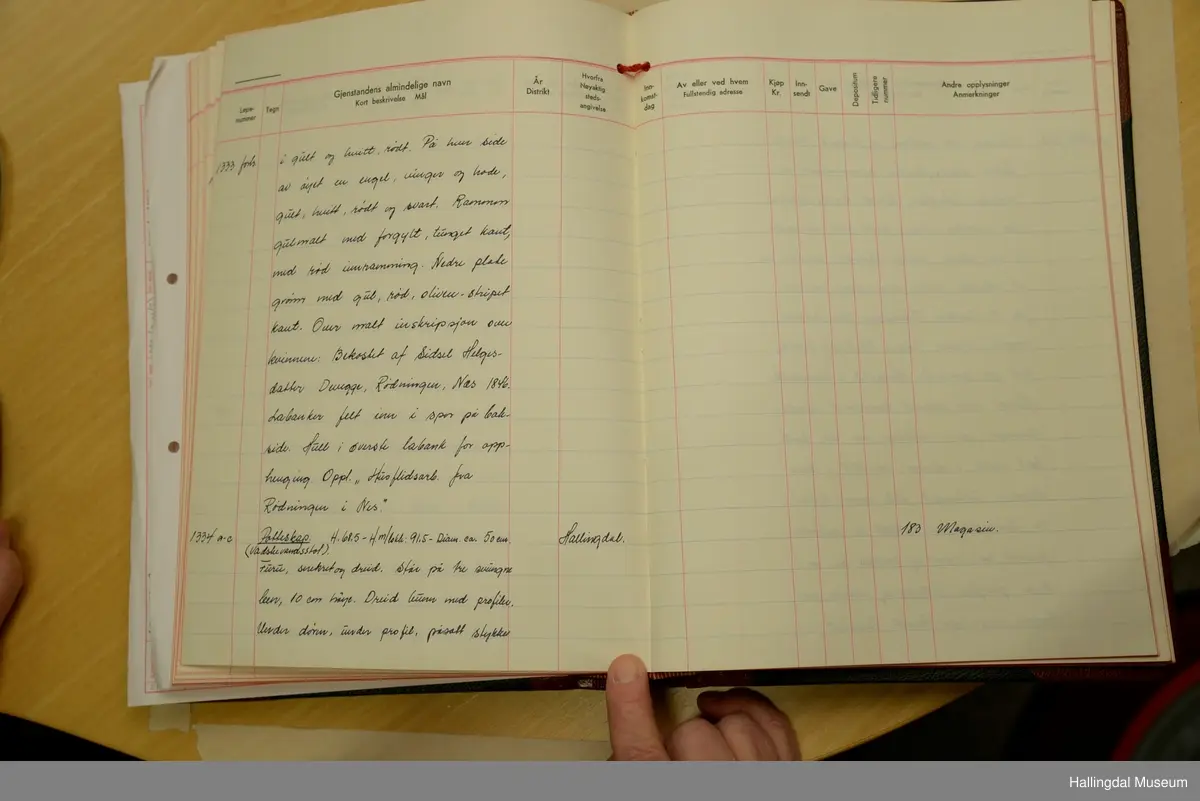 Løpe-nummer
Tegn
Gjenstandens almindelige navn
Kort beskrivelse Mål
År
Distrikt
Hvorfra
Nøyaktig
steds-
angivelse
Inn-
komst-
dag
Av eller ved hvem
Fullstendig adresse
Kjøp
Kr.
Inn-
sendt
Gave
Depositum
Tidligere
nummer
Andre opplysninger
Anmerkninger
1333 forts. i gult og hvitt, rødt. På hver side
av øyet en engel, vinger og hode,
gult, hvitt, rødt og svart. Rammen
gulmalt med forgylt, tunget kant,
med rød innramming. Nedre plate
grønn med gul, rød, oliven-stripet
kant. Over malt inskripsjon over
kvinnene: Bekostet af Sidsel Helges-
datter, Rødningen, Næs 1846.
Labanker felt inn i spor på bak-
side. Hull i øverste labank for opp-
henging Oppl. "Husflidsarb. fra
Rødningen i Nes."
1334 a-c Potteskap. H. 68.5 - H m/lokk. 91.5 - Diam. ca. 50 cm. Hallingdal. 183 Magasin.
Furu, snekret og dreid. Står på tre svungne
ben, 10 cm høye. Dreid med profiler.
Under døren, under profil, påsatt stykke
Hallingdal Museum